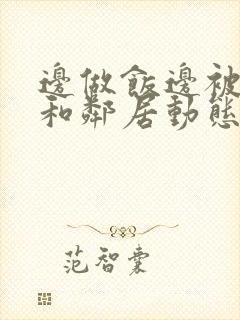 邊做飯邊被
和鄰居動態
范智囊